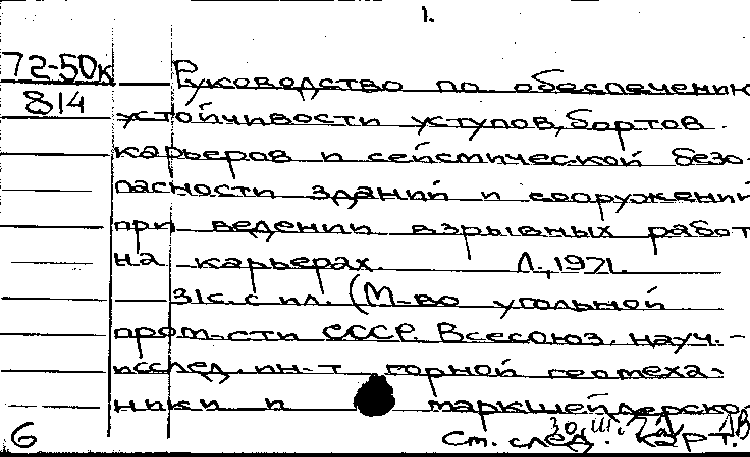 1.
72-50к Руководство по обеспечению
814 устойчивости уступов, бортов
карьеров и сейсмической безо-
пасности зданий и сооружений
при ведении взрывных работ
на карьерах. Л., 1971.
31с. с ил. (М-во угольной
пром-сти СССР. Всесоюз. науч.-
исслед. ин-т горной геомеха-
ники и маркшейдерско
6 См. след. карт.